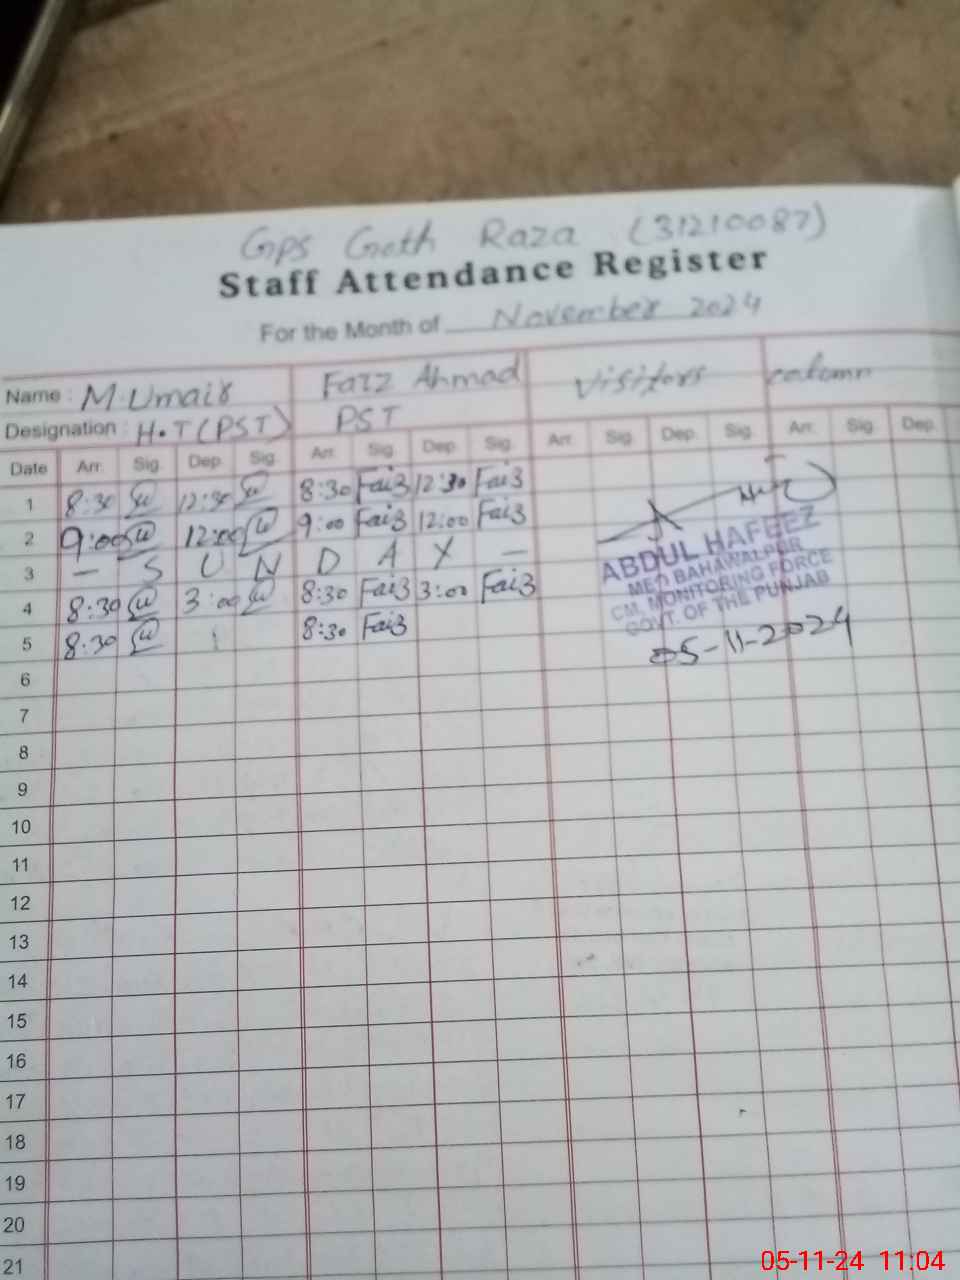 GPS Goth Raza (31210087)
Staff Attendance Register
For the Month of November 2024
Name : M. Umair Faiz Ahmad Visitors column
Designation : H.T (PST) PST
Date Arr. Sig. Dep. Sig. Arr. Sig. Dep. Sig. Arr. Sig. Dep. Sig. Arr. Sig. Dep.
1 8:30 12:30 8:30 Faiz 12:30 Faiz
2 9:00 12:00 9:00 Faiz 12:00 Faiz
3 — S U N D A Y —
4 8:30 3:00 8:30 Faiz 3:00 Faiz
5 8:30 8:30 Faiz
ABDUL HAFEEZ
MEO BAHAWALPUR
CM, MONITORING FORCE
GOVT. OF THE PUNJAB
05-11-2024
6
7
8
9
10
11
12
13
14
15
16
17
18
19
20
21
05-11-24 11:04